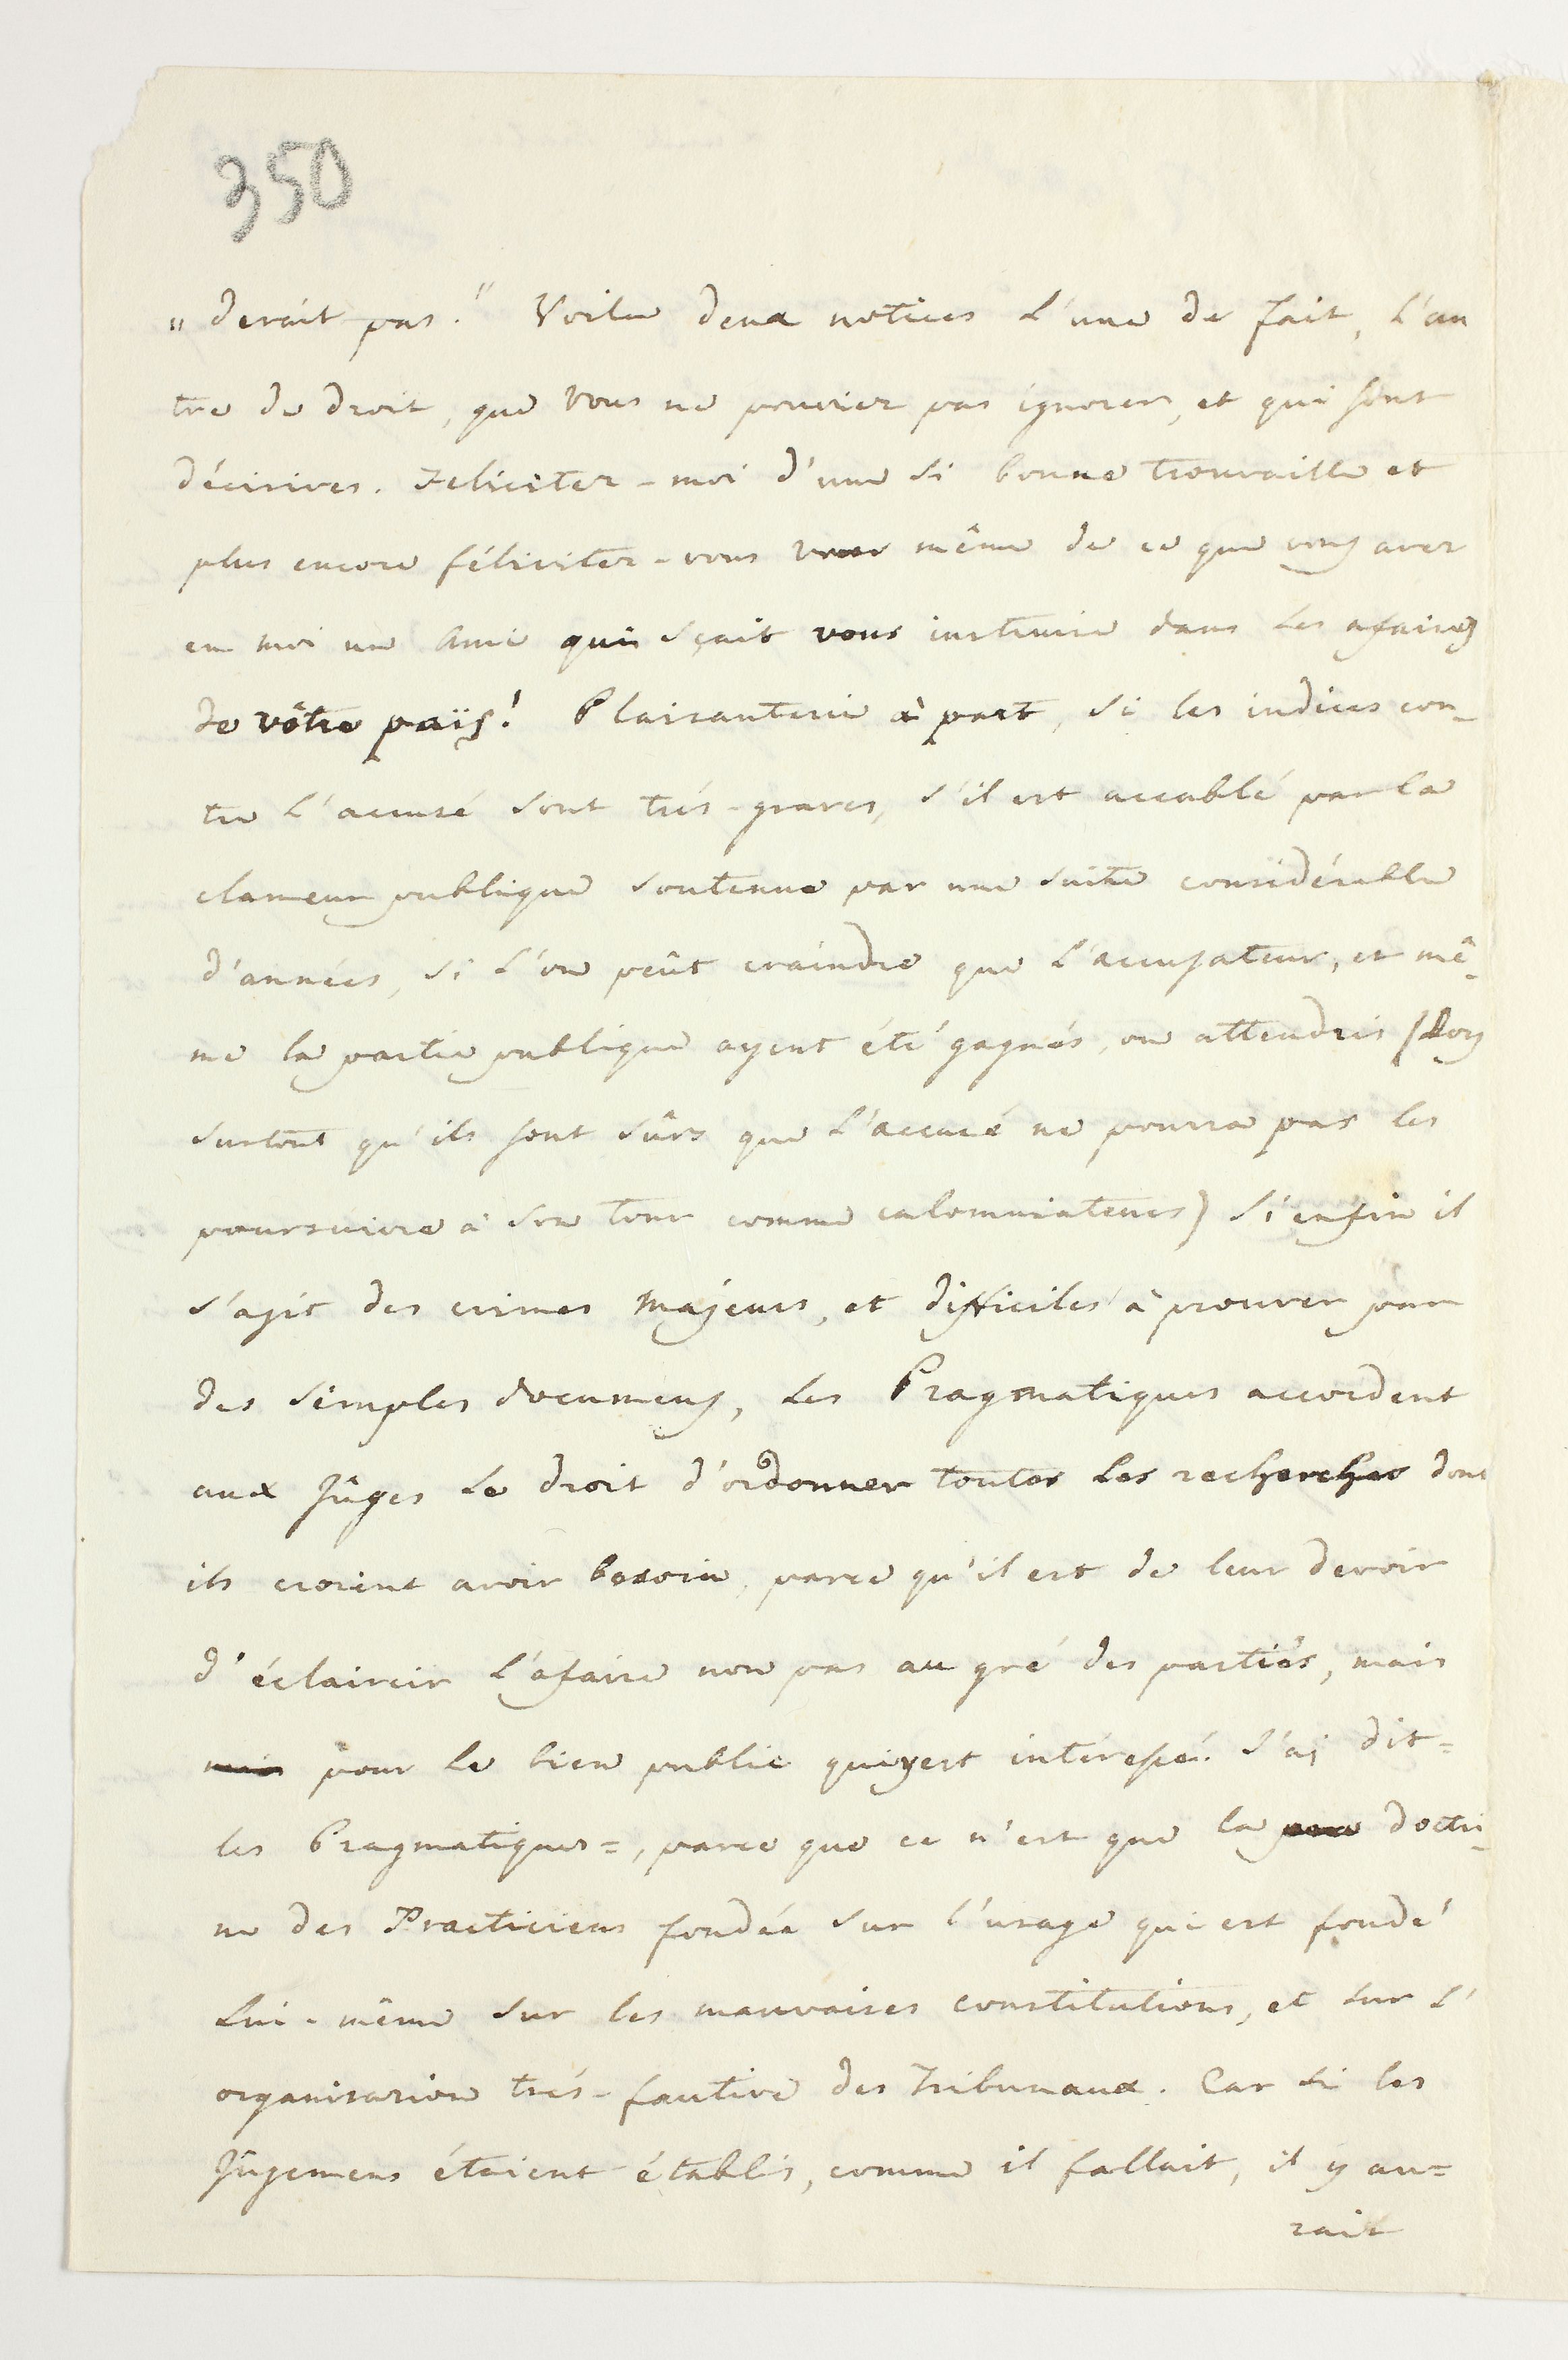 350
" derait pas." Voila deux notices l'une de fait, l'au
tre de droit, que vous ne pouviez pas ignorer, et qui sont
décisives. Feliciter-moi d'une si bonne trouvaille et
plus encore féliciter-vous même de ce que vous avez
en moi un Ami qui sçait vous instruire dans les afaires
de vôtre païs! Plaisanterie à part, si les indices con-
tre l'accusé sont trés-graves, s'il est accablé par la
clameur publique soutenue par une suite considérable
d'années, si l'on peût craindre que l'accusateur, et mê-
me la partie publique ayent été gagnés, ou attendris (
surtout qu'ils sont sûrs que l'accusé ne pourra pas les
poursuivre à son tour comme calomniateurs) si enfin il
s'agit des crimes majeurs, et difficiles à prouver par
des simples documens, les Pragmatiques accordent
aux Jûges le droit d'ordonner toutes les recherches dont
ils croient avoir besoin, parce qu'il est de leur devoir
d'éclaircir l'afaire non pas au gré des parties, mais
mais pour le bien public qui y est intéressé. J'ai dit=
les Pragmatiques=, parce que ce n'est que la doctri-
ne des Practiciens fondée sur l'usage qui est fondé
lui-même sur les mauvaises constitutions, et sur l'
organisation trés-fautive des Tribunaux. Car si les
Jûgemens étoient établis, comme il fallait, il y au=
rait